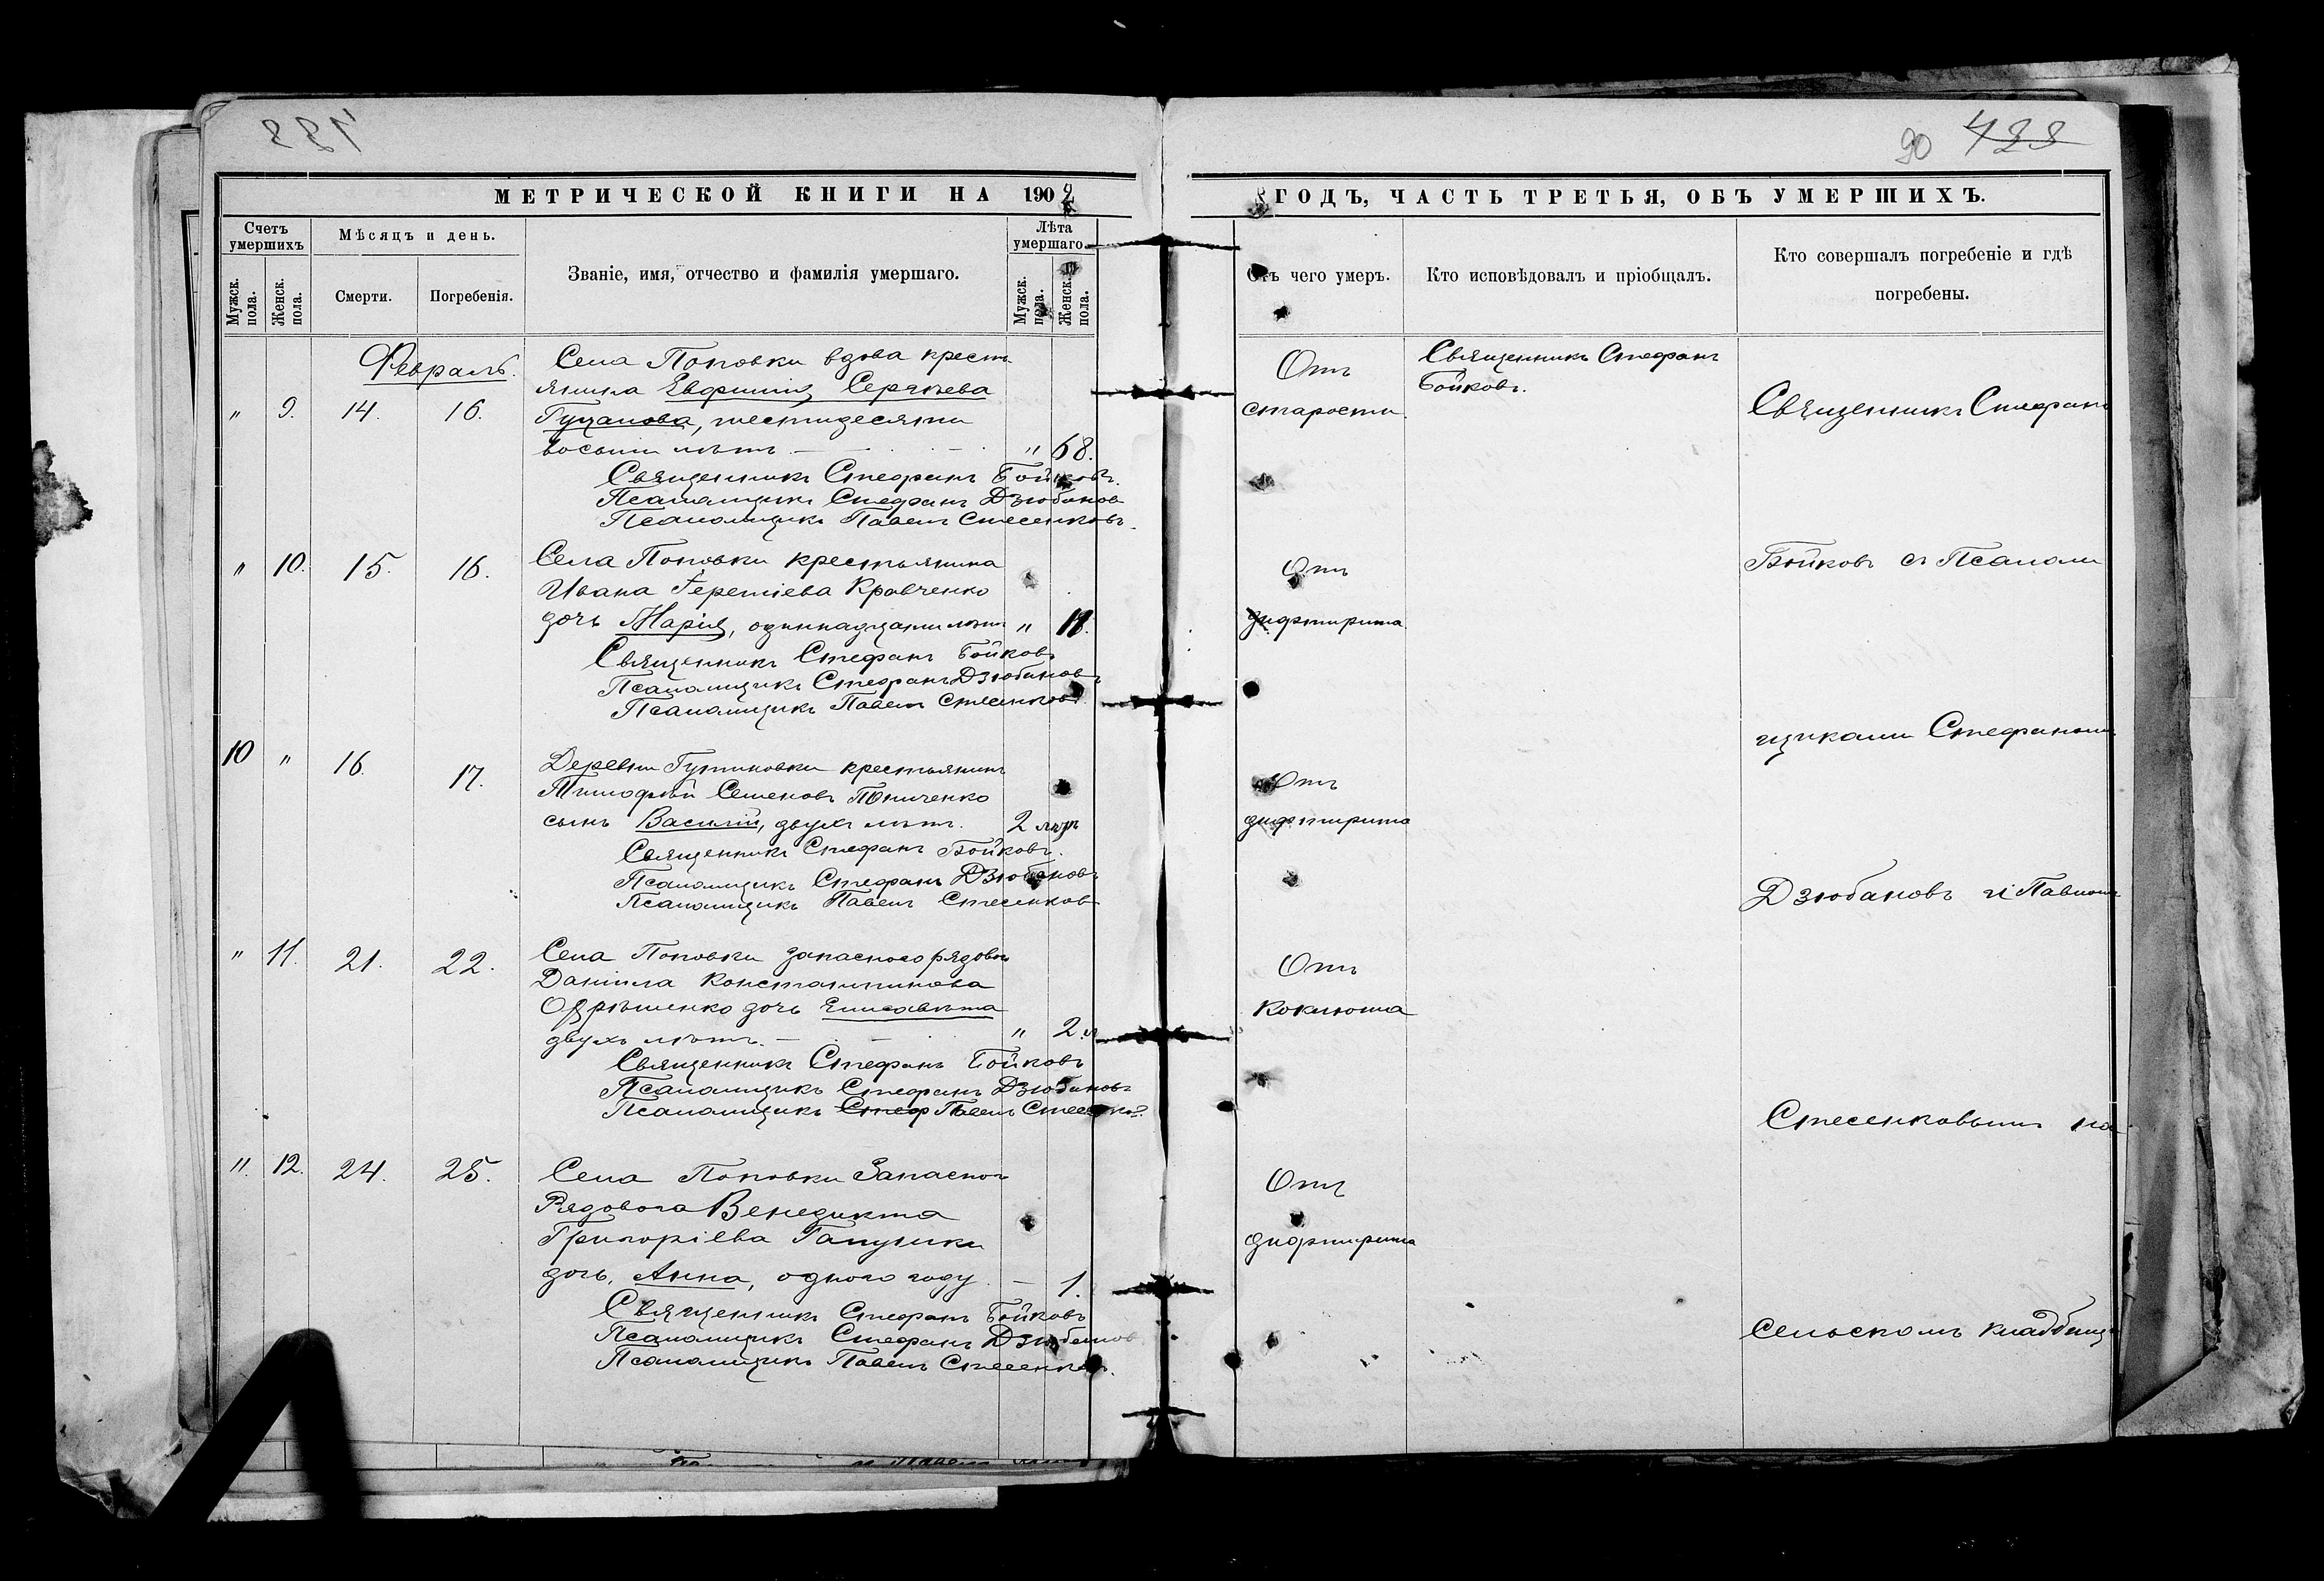 90 428
МЕТРИЧЕСКОЙ КНИГИ НА 1902
ГОДЪ, ЧАСТЬ ТРЕТЬЯ, ОБЪ УМЕРШИХЪ.
Счетъ умершихъ
Мѣсяцъ и день.
Званіе, имя, отчество и фамилія умершаго.
Лѣта умершаго.
Мужск. пола.
Женск. пола.
Смерти.
Погребенія.
Мужск. пола.
Женск. пола.
Отъ чего умеръ.
Кто исповѣдовалъ и пріобщалъ.
Кто совершалъ погребеніе и гдѣ погребены.
Февраль.
" 9. 14. 16.
Села Поповки вдова крестъ
янина Евфимія Сергѣева
шестидесяти
восьми лѣтъ. " 68.
Священникъ Стефанъ Бойковъ.
Псаломщикъ Стефанъ Дзюбановъ
Псаломщикъ Павелъ Стесенковъ.
Отъ
старости
Священникъ Стефанъ
Бойковъ.
" 10. 15. 16.
Села Поповки крестьянина
Ивана Іереміева Кравченко
дочь Марія, одиннадцати лѣтъ " 11.
Священникъ Стефанъ Бойковъ
Псаломщикъ Стефанъ Дзюбановъ
Псаломщикъ Павелъ Стесенковъ
Отъ
дифтирита.
10 " 16. 17.
Деревни крестьянинъ
Тимофѣй Семеновъ
сынъ Василій, двухъ лѣтъ. 2 лѣтъ
Священникъ Стефанъ Бойковъ.
Псаломщикъ Стефанъ Дзюбановъ
Псаломщикъ Павелъ Стесенковъ
Отъ
дифтирита
" 11. 21. 22.
Села Поповки запасного рядового
Даніила Константинова
дочь Елисавета
двухъ лѣтъ. " 2 л
Священникъ Стефанъ Бойковъ
Псаломщикъ Стефанъ Дзюбановъ
Псаломщикъ Стеф Павелъ Стесенковъ.
Отъ
коклюша
" 12. 24. 25.
Села Поповки Запасного
Рядового Венедикта
Григоріева
дочь, Анна, одного году. — 1.
Священникъ Стефанъ Бойковъ
Псаломщикъ Стефанъ Дзюбановъ
Псаломщикъ Павелъ Стесенковъ.
Отъ
дифтирита
Священникъ Стефанъ
Бойковъ съ Псалом
щиками Стефаномъ
Дзюбановъ и Павломъ
Стесенковымъ на
сельскомъ кладбищѣ